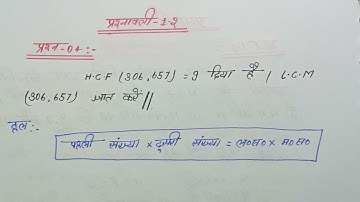 प्रश्नावली-1.2
प्रश्न-04:-
H.C.F (306,657) = 9 दिया है / L.C.M
(306,657) ज्ञात करें //
हल:-
पहली संख्या × दूसरी संख्या = ल०स० × म०स०